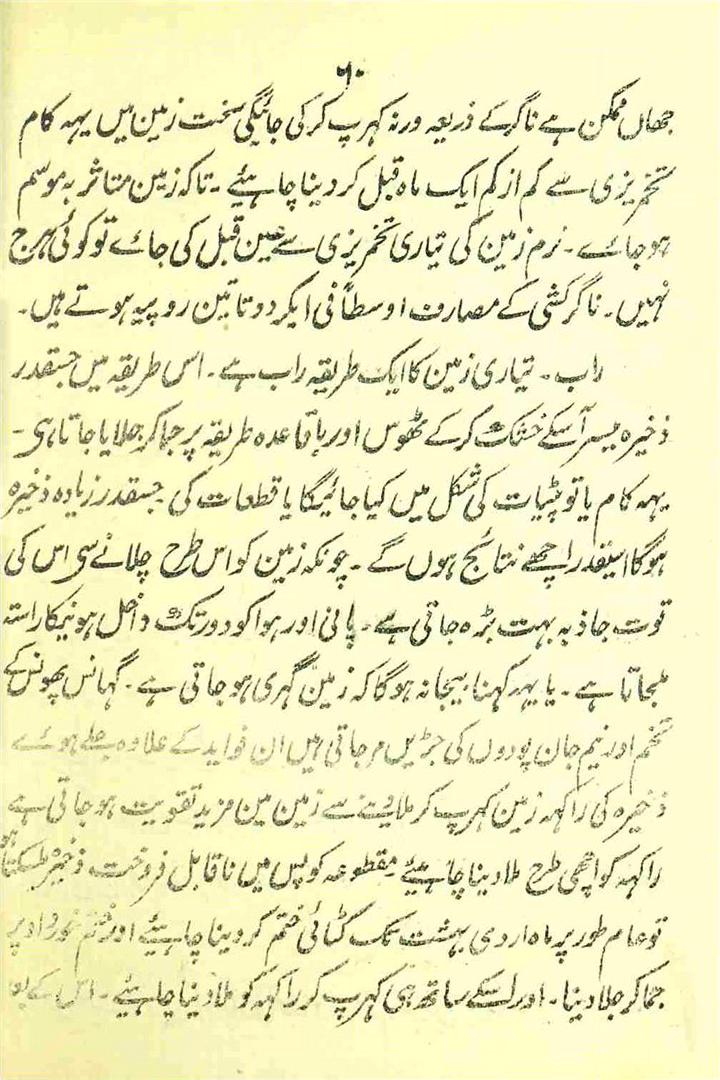 ۶۰
جہاں ممکن ہے ناگر کے ذریعہ ورنہ کہرپ کر کی جائیگی سخت زمین میں یہہ کام
تخمریزی سے کم از کم ایک ماہ قبل کر دینا چاہئیے ۔ تاکہ زمین متاثر بہ موسم
ہو جائے ۔ نرم زمین کی تیاری تخمریزی سے عین قبل کی جائے تو کوئی ہرج
نہیں ۔ ناگر کشی کے مصارف اوسطاً فی ایکر دو تا تین روپیہ ہوتے ہیں ۔
راب ۔ تیاری زمین کا ایک طریقہ راب ہے ۔ اس طریقہ میں جسقدر
ذخیرہ میسر آسکے خشک کر کے ٹھوس اور باقاعدہ طریقہ پر جما کر جلایا جاتا ہی ۔
یہہ کام یا تو پٹیات کی شکل میں کیا جائیگا یا قطعات کی جسقدر زیادہ ذخیرہ
ہوگا اسیقدر اچھے نتائج ہوں گے ۔ چونکہ زمین کو اس طرح جلانے سی اس کی
قوت جاذبہ بہت بڑہ جاتی ہے ۔ پانی اور ہوا کو دور تک داخل ہونیکا راستہ
ملجاتا ہے ۔ یا یہہ کہنا بیجا نہ ہوگا کہ زمین گہری ہو جاتی ہے ۔ گہانس پھونس کے
تخم اور نیم جان پودوں کی جڑیں مر جاتی ہیں ان فواید کے علاوہ جلے ہوئے
ذخیرہ کی راکہہ زمین کہرپ کر ملا دینے سے زمین مین مزید تقویت ہو جاتی ہے
راکہہ کو اچھی طرح ملا دینا چاہئیے مقطوعہ کوپس میں ناقابل فروخت ذخیرہ
تو عام طور پر ماہ اردی بہشت تک کٹائی ختم کر دینا چاہئیے اور ختم پر
جما کر جلا دینا ۔ اور اسکے ساتھ ہی کہرپ کر راکہہ کو ملا دینا چاہئیے ۔ اس کے بعد